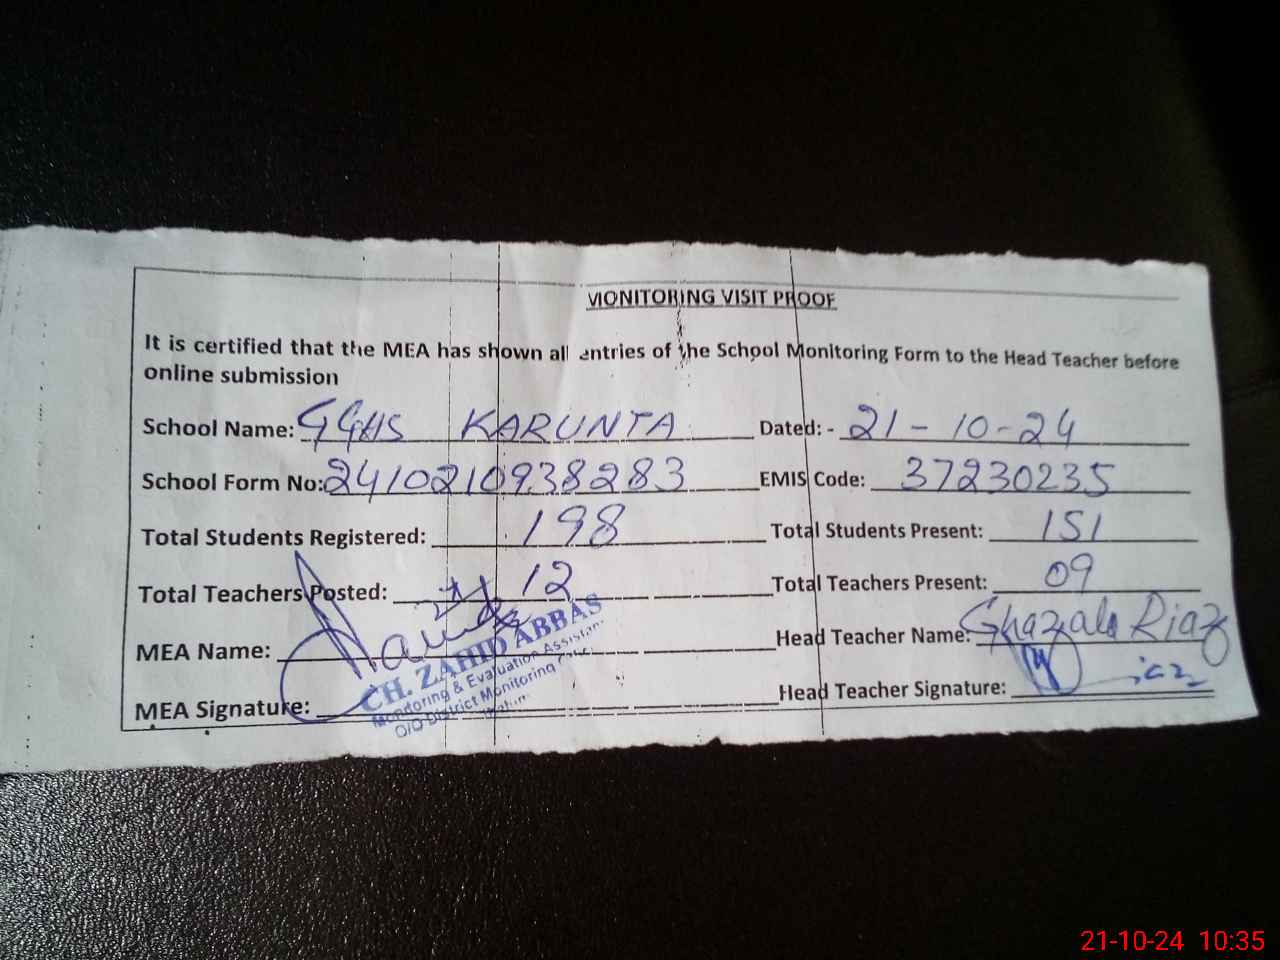 MONITORING VISIT PROOF
It is certified that the MEA has shown all entries of the School Monitoring Form to the Head Teacher before
online submission
School Name: GGHS KARUNTA Dated: - 21-10-24
School Form No: 2410210938283 EMIS Code: 37230235
Total Students Registered: 198 Total Students Present: 151
Total Teachers Posted: 12 Total Teachers Present: 09
MEA Name: Head Teacher Name: Ghazala Riaz
CH. ZAHID ABBAS
Monitoring & Evaluation Assistant
O/O District Monitoring
MEA Signature: Head Teacher Signature:
21-10-24 10:35